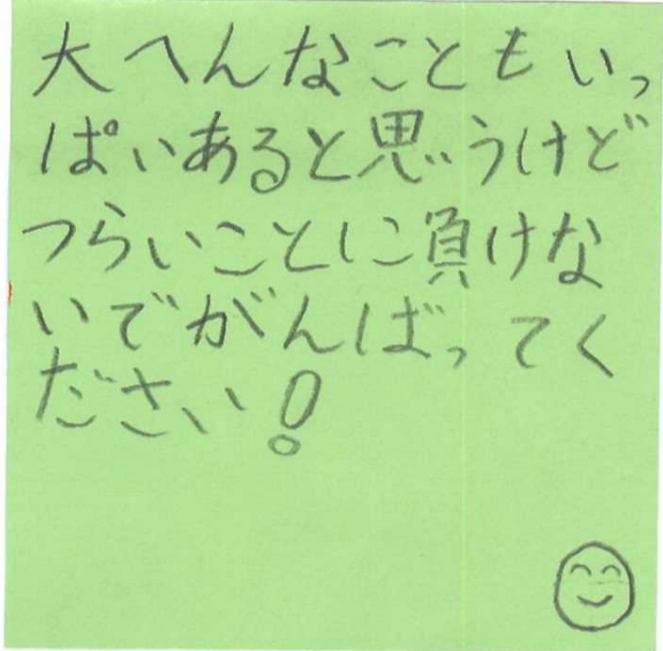 大へんなこともいっ
ぱいあると思うけど
つらいことに負けな
いでがんばってく
ださい！